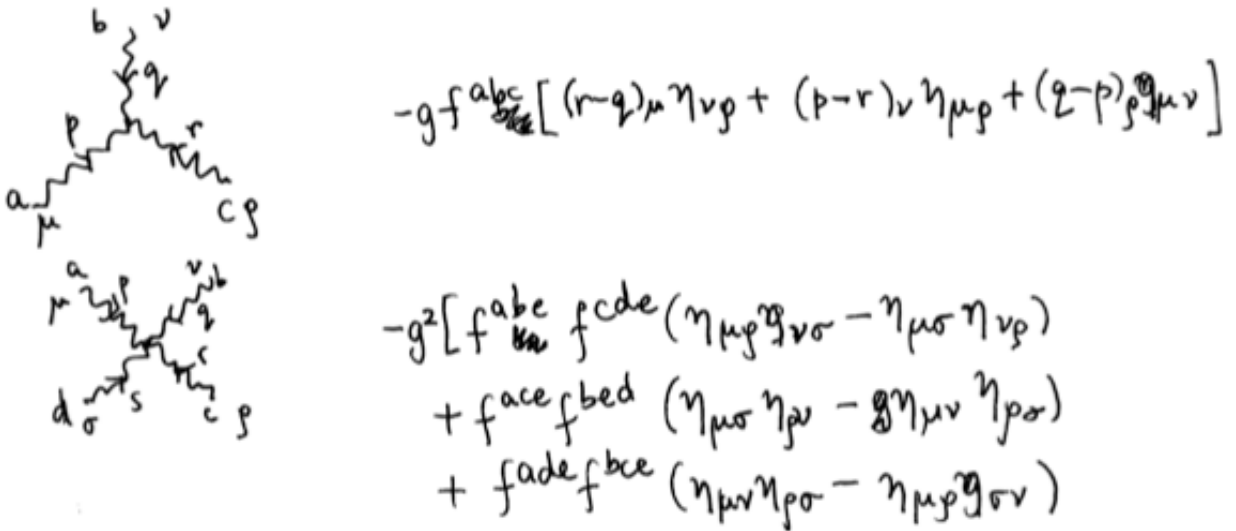 b ν
q
p r
a μ c ρ
-g f^{abc} [(r-q)_μ η_{νρ} + (p-r)_ν η_{μρ} + (q-p)_ρ η_{μν}]
a ν b
μ p q
r
d σ s c ρ
-g² [f^{abe} f^{cde} (η_{μρ} η_{νσ} - η_{μσ} η_{νρ})
+ f^{ace} f^{bed} (η_{μσ} η_{ρν} - η_{μν} η_{ρσ})
+ f^{ade} f^{bce} (η_{μν} η_{ρσ} - η_{μρ} η_{σν})